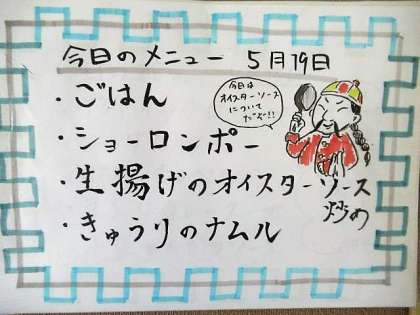 今日のメニュー 5月19日
・ごはん
・ショーロンポー
・生揚げのオイスターソース
炒め
・きゅうりのナムル
今日は
オイスターソース
について
だぞ!!